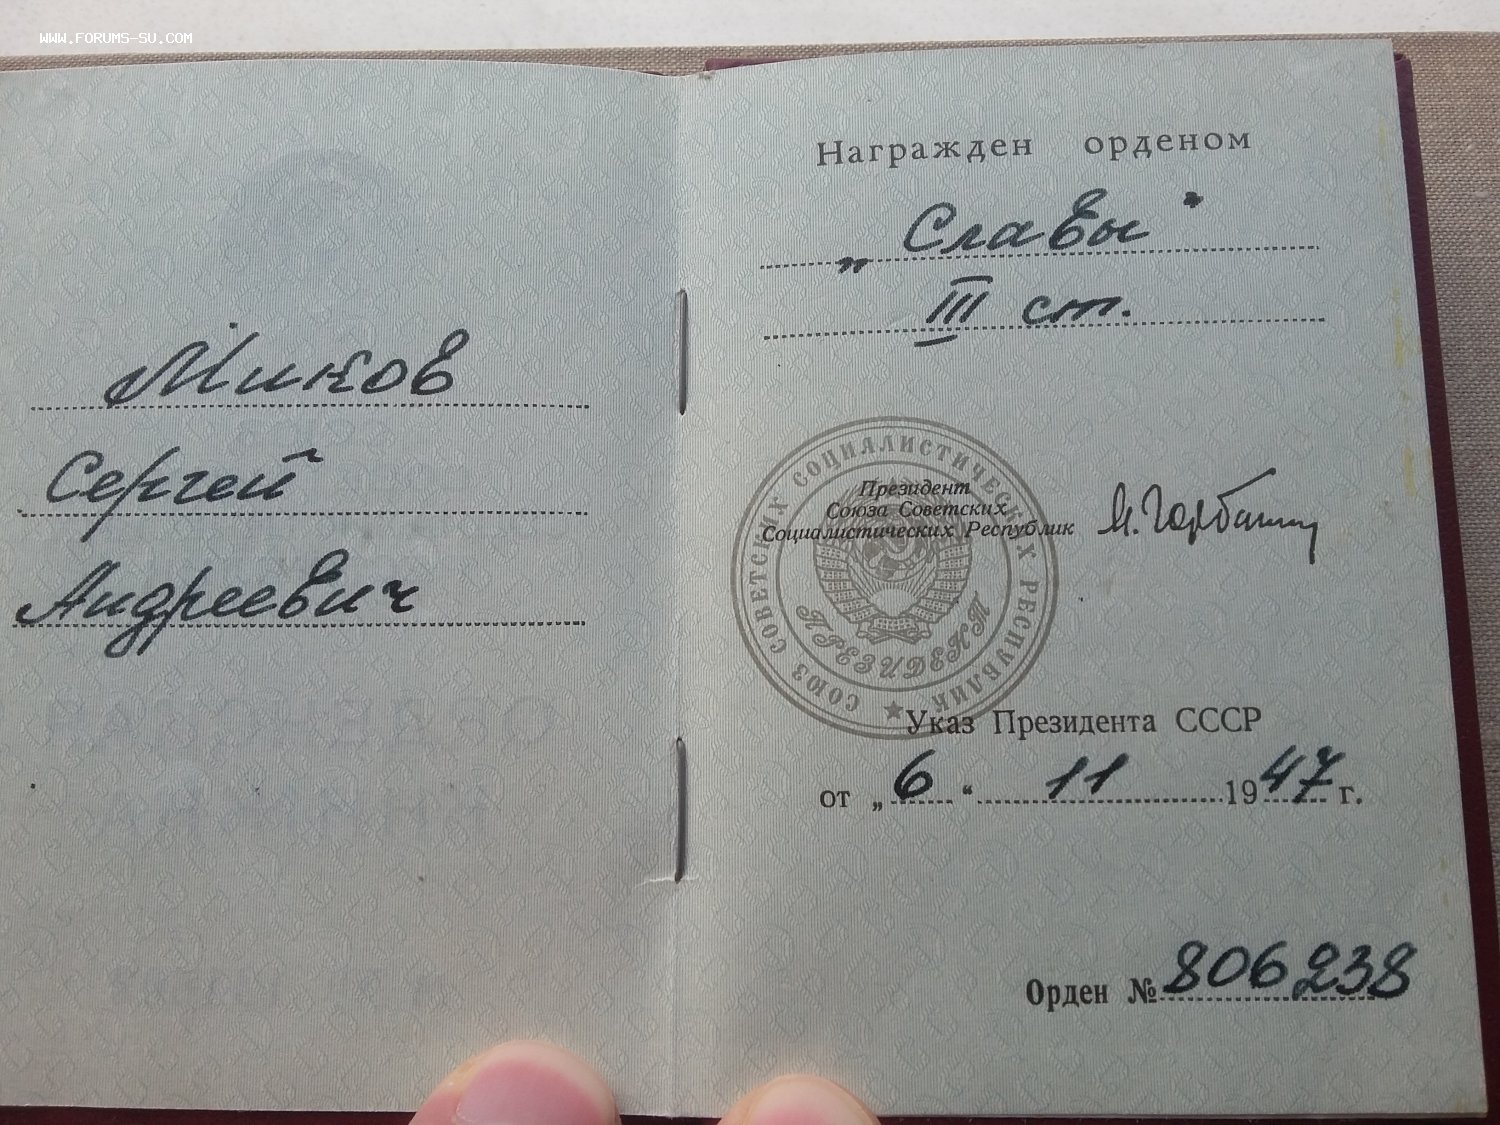 WWW.FORUMS-SU.COM
Миков
Сергей
Андреевич
Награжден орденом
„Славы"
III ст.
Президент
Союза Советских
Социалистических Республик
М. Горбачев
СОЮЗ СОВЕТСКИХ СОЦИАЛИСТИЧЕСКИХ РЕСПУБЛИК
ПРЕЗИДЕНТ
Указ Президента СССР
от „6“ 11 1947 г.
Орден № 806238